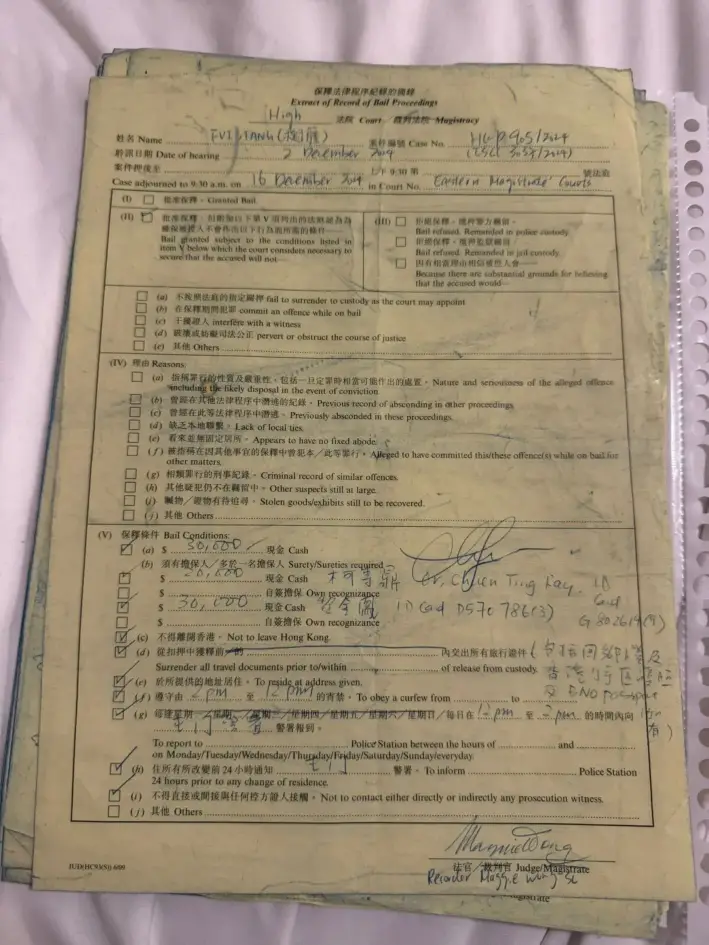 保釋法律程序紀錄的摘錄
Extract of Record of Bail Proceedings
High
法院 Court 裁判法院 Magistracy
姓名 Name FUI 案件編號 Case No. 905/2024
聆訊日期 Date of hearing 2 December 2024
案件押後至 上午 9:30 第 號法庭
Case adjourned to 9:30 a.m. on 16 December 2024 in Court No. Eastern Magistrates' Courts
(I) 批准保釋。Granted Bail.
(II) 批准保釋,但附加以下第 V 項列出的
Bail granted subject to the conditions listed in
item V below which the court considers necessary to
secure that the accused will not—
(III) 拒絕保釋。還押警方看管。
Bail refused. Remanded in police custody.
拒絕保釋。還押監獄看管。
Bail refused. Remanded in jail custody.
因有相當理由相信被告人會—
Because there are substantial grounds for believing
that the accused would—
(a) 不按照法庭的指定歸押 fail to surrender to custody as the court may appoint
(b) 在保釋期間犯罪 commit an offence while on bail
(c) 干擾證人 interfere with a witness
(d) 破壞或妨礙司法公正 pervert or obstruct the course of justice
(e) 其他 Others
(IV) 理由 Reasons:
(a) 指稱罪行的性質及嚴重性,包括一旦定罪時相當可能作出的處置。Nature and seriousness of the alleged offence
including the likely disposal in the event of conviction
(b) 曾經在其他法律程序中潛逃的紀錄。Previous record of absconding in other proceedings
(c) 曾經在此等法律程序中潛逃。Previously absconded in these proceedings.
(d) 缺乏本地聯繫。Lack of local ties.
(e) 看來並無固定居所。Appears to have no fixed abode.
(f) 被指稱在因其他事宜的保釋中曾犯本/此等罪行。Alleged to have committed this/these offence(s) while on bail for
other matters.
(g) 相類罪行的刑事紀錄。Criminal record of similar offences.
(h) 其他疑犯仍不在羈留中。Other suspects still at large.
(i) 贓物/證物有待追尋。Stolen goods/exhibits still to be recovered.
(j) 其他 Others
(V) 保釋條件 Bail Conditions:
(a) $ 30,000 現金 Cash
(b) 須有擔保人/多於一名擔保人 Surety/Sureties required
$ 20,000 現金 Cash Ting Kay, ID
$ 自簽擔保 Own recognizance Card
$ 30,000 現金 Cash ID Card D570786(3) G 802619(9)
$ 自簽擔保 Own recognizance
(c) 不得離開香港。Not to leave Hong Kong.
(d) 從扣押中獲釋前 的 內交出所有旅行證件
Surrender all travel documents prior to/within of release from custody. 香港特區
(e) 於所提供的地址居住。To reside at address given. 及 BNO passport
(f) 遵守由 2pm 至 12pm 的宵禁。To obey a curfew from to
(g) 每逢星期一/星期二/星期三/星期四/星期五/星期六/星期日/每日在 12pm 至 2pm 的時間內向
屯門警署 警署報到。
To report to Police Station between the hours of and
on Monday/Tuesday/Wednesday/Thursday/Friday/Saturday/Sunday/everyday.
(h) 住所有所改變前 24 小時通知 屯門 警署。To inform Police Station
24 hours prior to any change of residence.
(i) 不得直接或間接與任何控方證人接觸。Not to contact either directly or indirectly any prosecution witness.
(j) 其他 Others
法官/裁判官 Judge/Magistrate
Recorder Maggie Wong SC
Magistrate